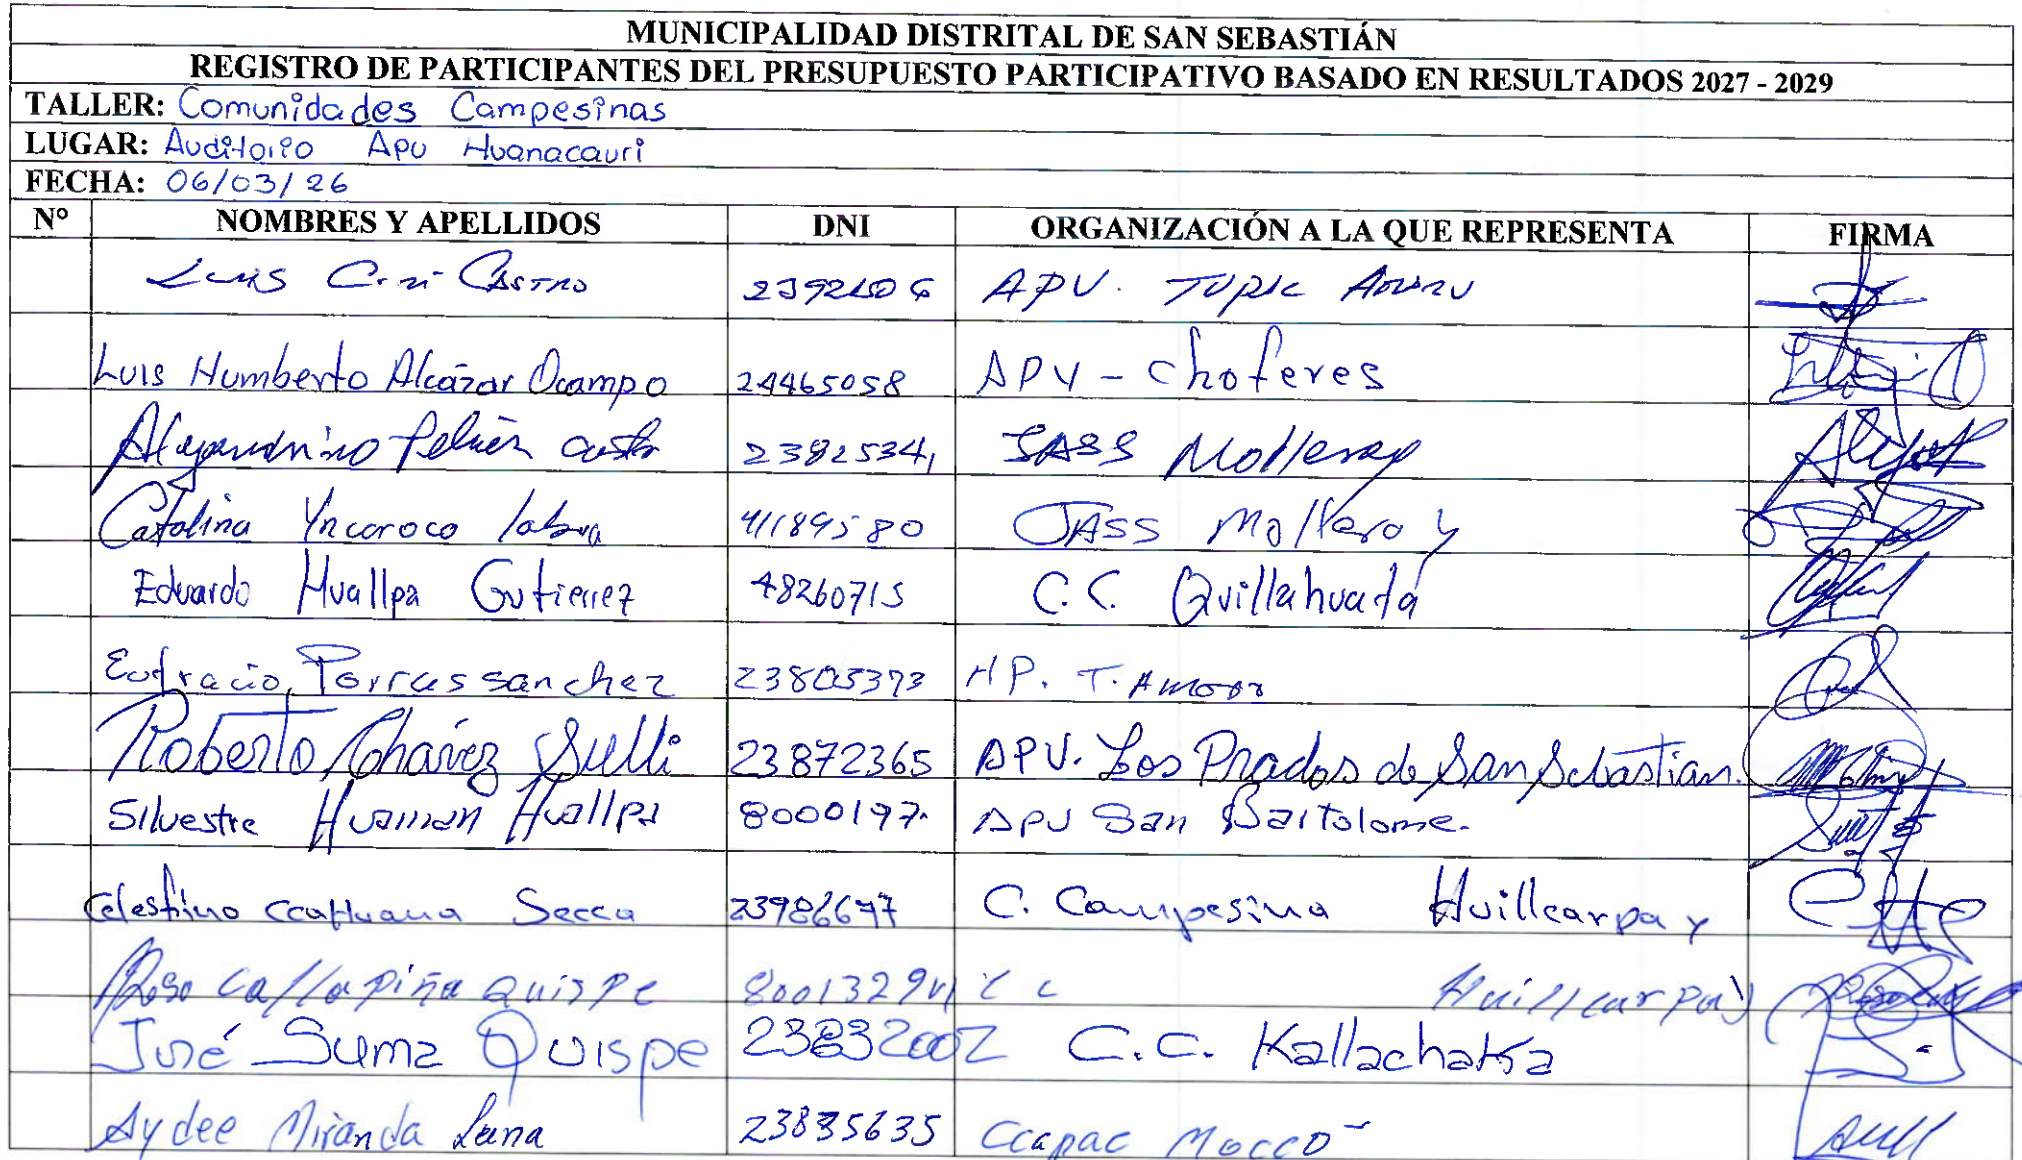 MUNICIPALIDAD DISTRITAL DE SAN SEBASTIÁN
REGISTRO DE PARTICIPANTES DEL PRESUPUESTO PARTICIPATIVO BASADO EN RESULTADOS 2027 - 2029
TALLER: Comunidades Campesinas
LUGAR: Auditorio Apu Huanacauri
FECHA: 06/03/26
N° NOMBRES Y APELLIDOS DNI ORGANIZACIÓN A LA QUE REPRESENTA FIRMA
Luis Castro APV. Tupac Amaru
Luis Humberto Alcázar Ocampo 24465058 APV - Choferes
Alejandrino Castro 23825341 JASS Molleray
Catalina Yncoroco Labra 41189580 JASS Molleray
Eduardo Huallpa Gutierrez 48260715 C.C. Quillahuata
Eufracio Porras sanchez 23805373 T. Amaru
Roberto Chávez Sulli 23872365 APV. Los Prados de San Sebastian.
Silvestre Huaman Huallpa 8000197. APU San Bartolome.
Celestino Ccahuana Secca 23986677 C. Campesina Huillcarpay
Roso Callapiña Quispe 80013294 C C Huillcarpay
José Suma Quispe 23832002 C.C. Kallachaka
Aydee Miranda Luna 23835635 Ccapac Mocco